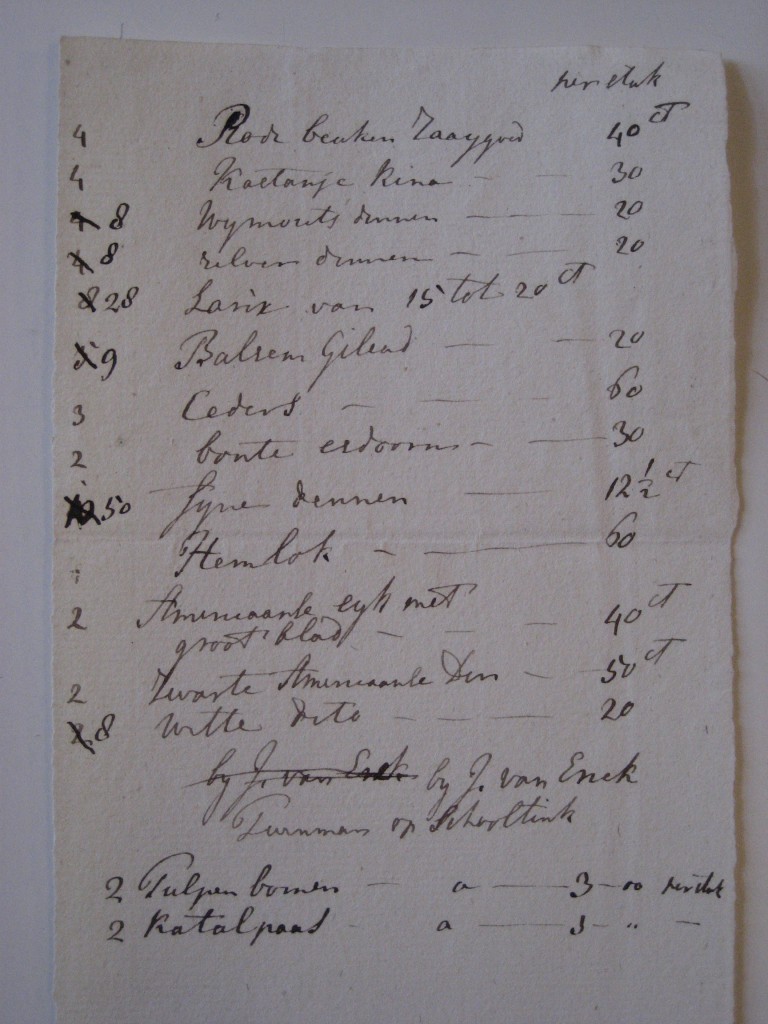 per stuk
4 Rode beuken Zaaygoed 40 ct
4 Kastanje Rina - - 30
8 Wymouts dennen - - 20
8 zilver dennen - - 20
28 Larix van 15 tot 20 ct
9 Balsem Gilead - - 20
3 Ceders - - 60
2 bonte esdoorns - - 30
50 fyne dennen - 12 1/2 ct
Hemlok - - 60
2 Americaanse eyk met
groot blad - - - 40 ct
2 Zwarte Americaanse Den - 50 ct
8 Witte dito - - - 20
by J. van Enck by J. van Enck
Tuinman op Schooltink
2 Tulpen bomen - a - 3-00 per stuk
2 Katalpaas - a - 3 - " -